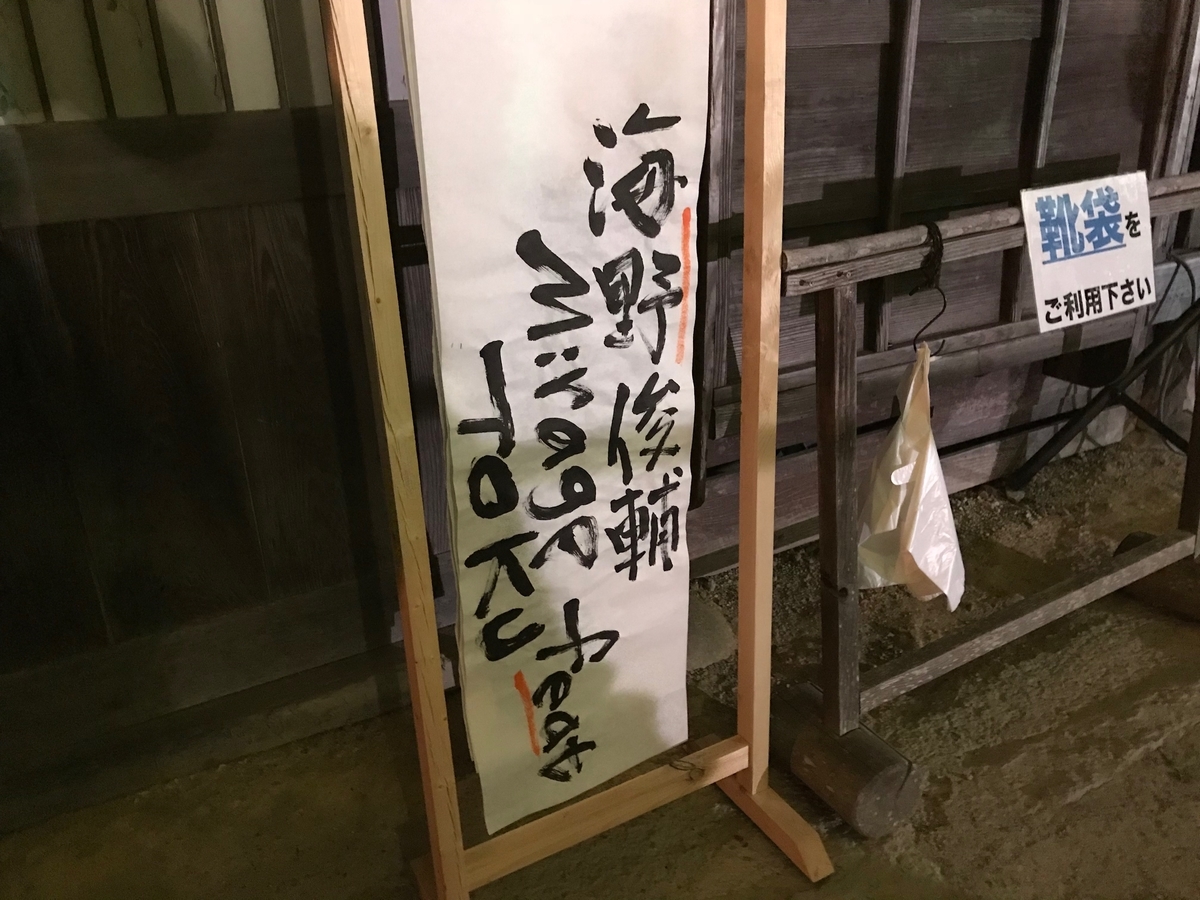 海野俊輔
Mirage feat
Toku
靴袋を
ご利用下さい